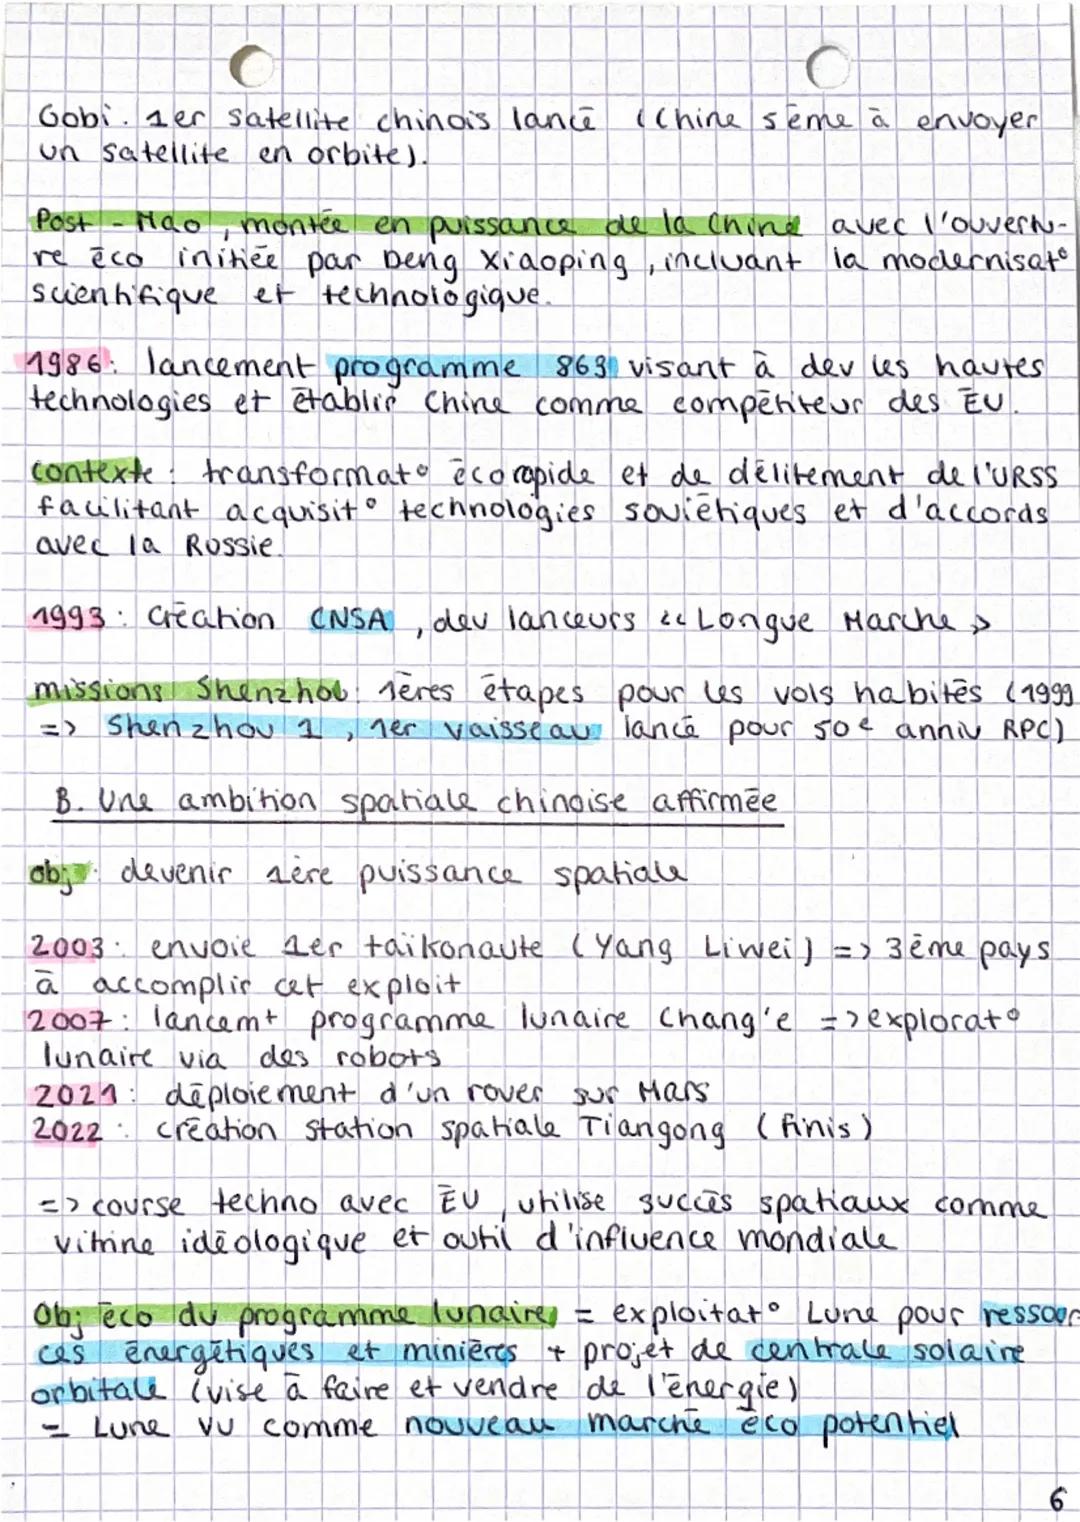 Gobi. 1er satellite chinois lancé (Chine 5ème à envoyer
un satellite en orbite).
Post-Mao, montée en puissance de la Chine avec l'ouvertu-
re éco initiée par Deng Xiaoping, incluant la modernisat°
scientifique et technologique.
1986: lancement programme 863 visant à dev les hautes
technologies et établir Chine comme compétiteur des ÉU.
contexte: transformat° éco rapide et de délitement de l'URSS
facilitant acquisit° technologies soviétiques et d'accords
avec la Russie.
1993: Création CNSA, dev lanceurs << Longue Marche >
missions Shenzhou: 1ères étapes pour les vols habités (1999
=> Shenzhou 1, 1er vaisseau lancé pour 50e anniv RPC)
B. Une ambition spatiale chinoise affirmée
obj: devenir 1ère puissance spatiale
2003: envoie 1er taïkonaute (Yang Liwei) => 3ème pays
à accomplir cet exploit
2007: lancemt programme lunaire Chang'e => explorat°
lunaire via des robots
2021: déploiement d'un rover sur Mars
2022: création station spatiale Tiangong (finis)
=> course techno avec ÉU, utilise succès spatiaux comme
vitrine idéologique et outil d'influence mondiale
Obj éco du programme lunaire = exploitat° Lune pour ressour-
ces énergétiques et minières + projet de centrale solaire
orbitale (vise à faire et vendre de l'énergie)
= Lune vu comme nouveau marché éco potentiel
6